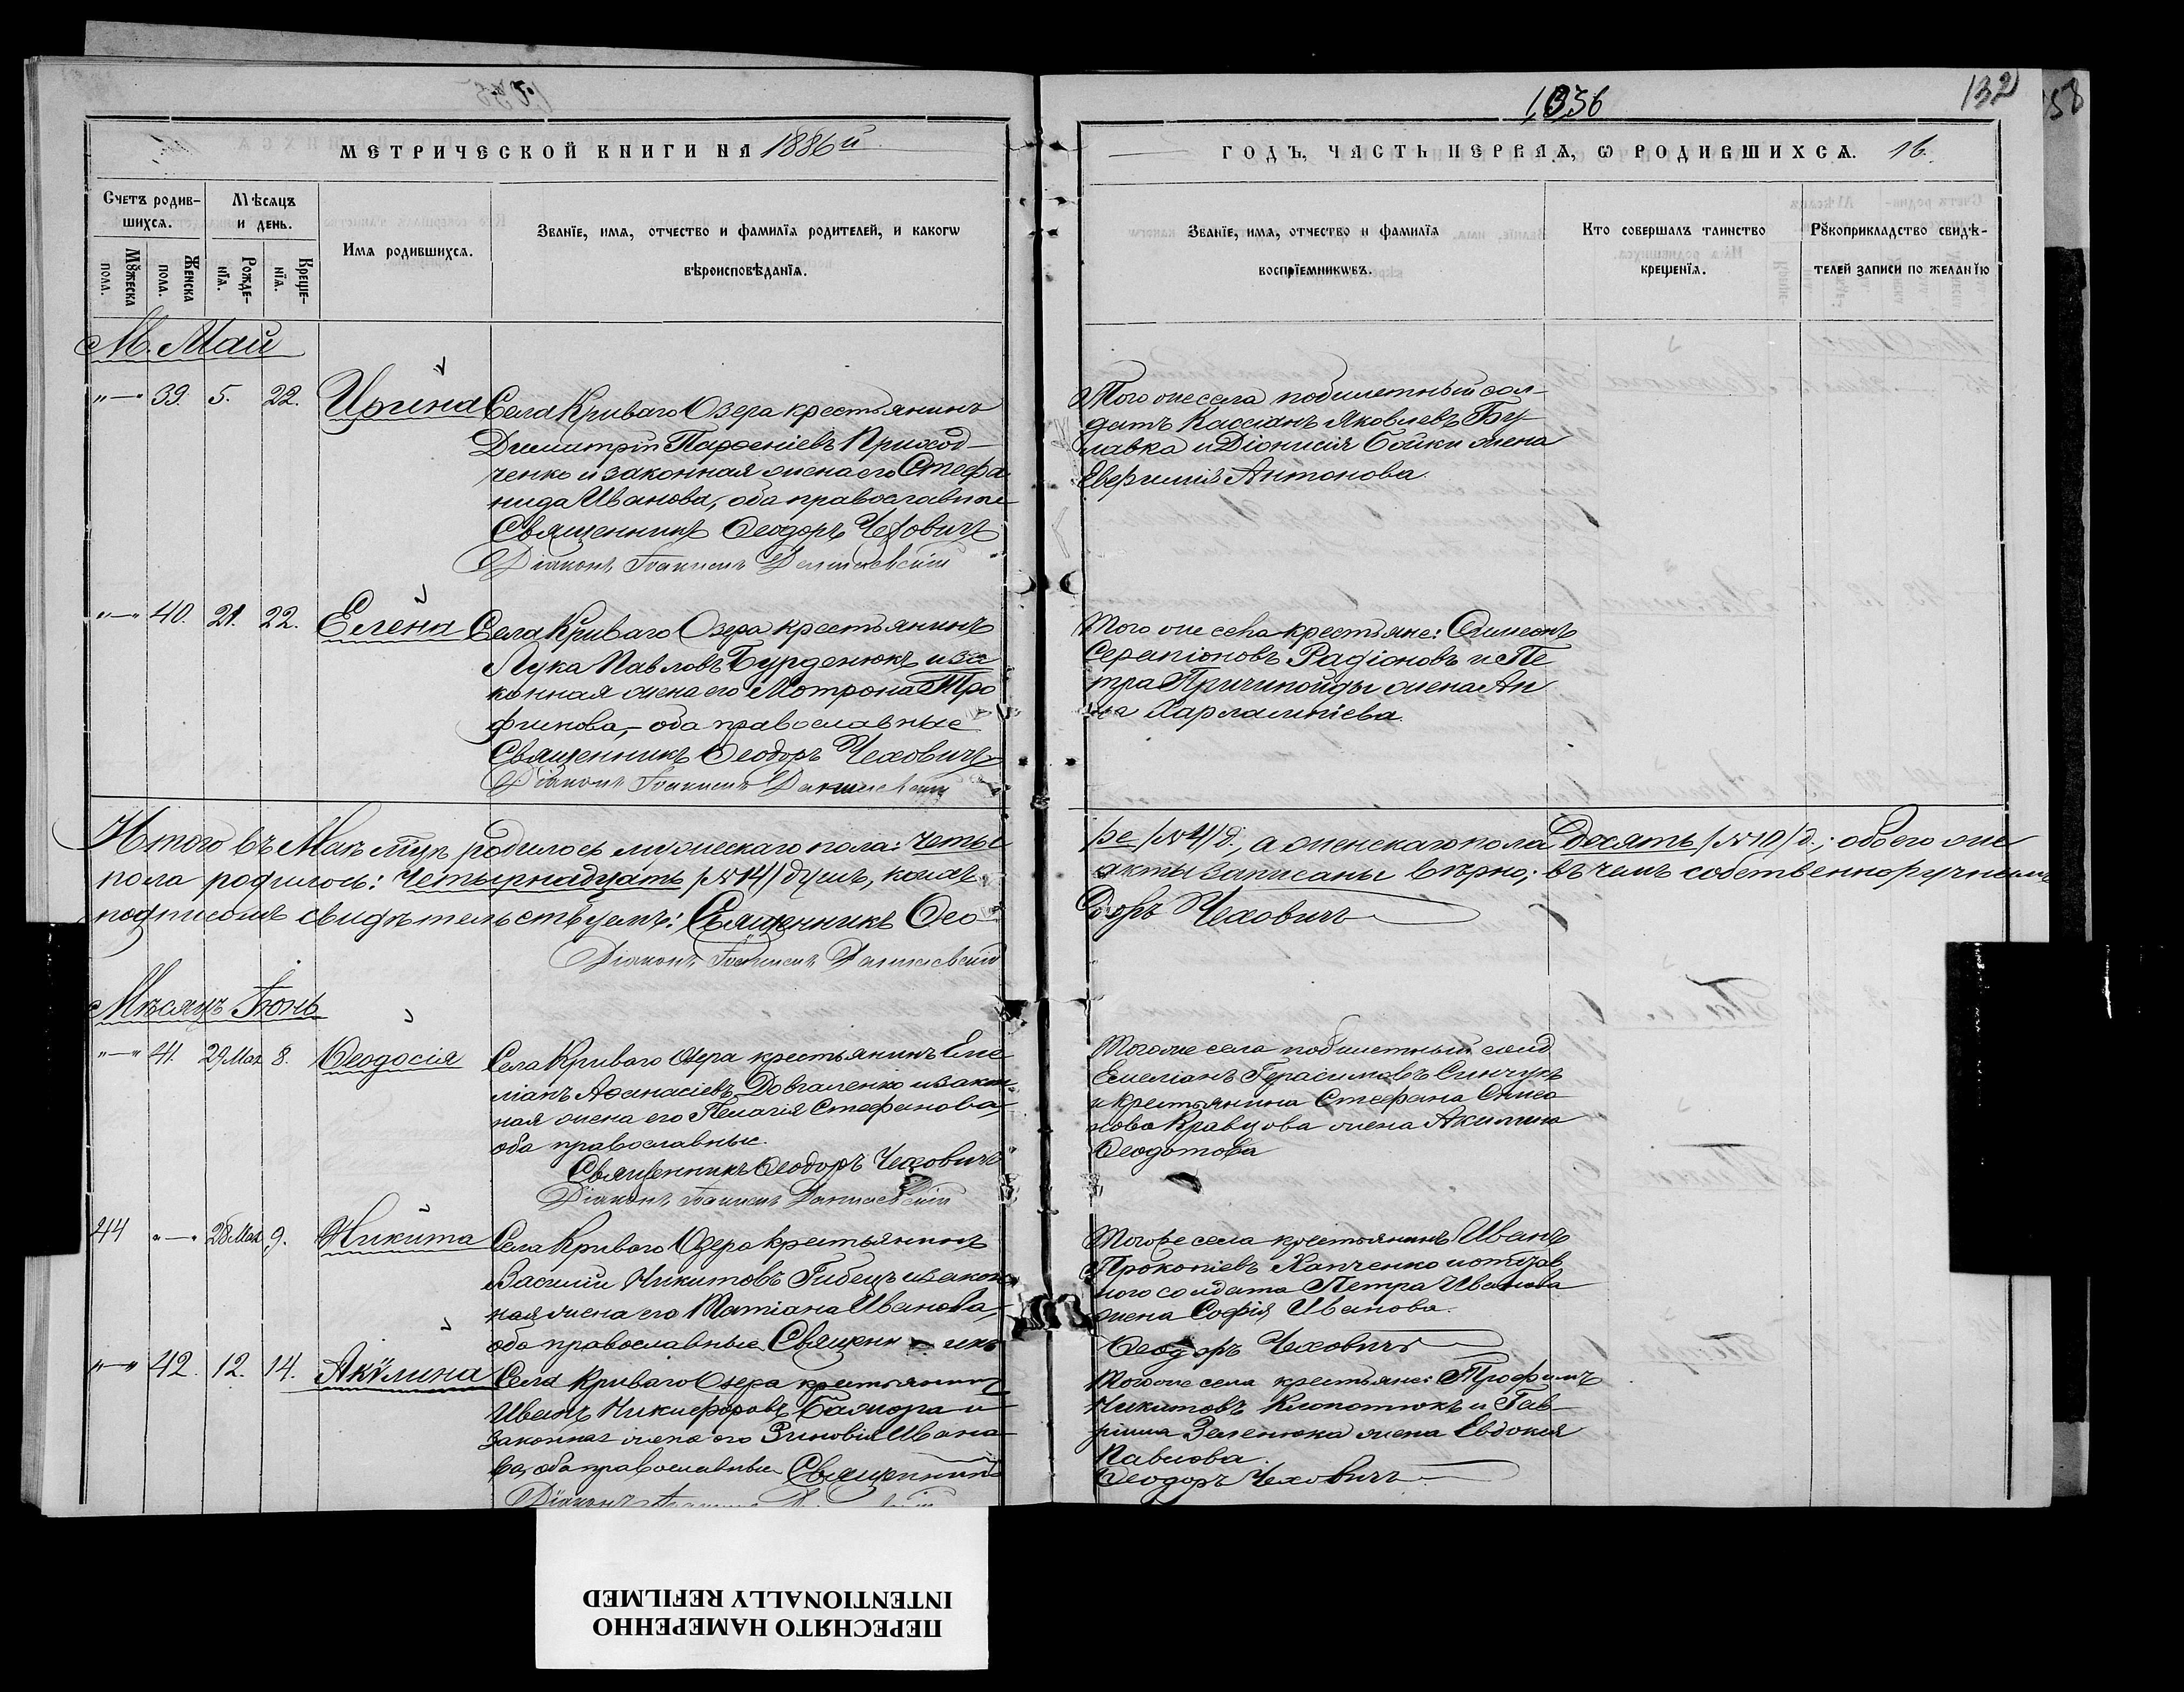 1356
132
МЕТРИЧЕСКОЙ КНИГИ НА 1886й
ГОДЪ, ЧАСТЬ ПЕРВАЯ, Ѡ РОДИВШИХСѦ. 16.
Счетъ родив-
шихсѧ.
Мꙋжеска
пола.
Женска
пола.
Мѣсѧцъ
и день.
Рожде-
нїѧ.
Креще-
нїѧ.
Имѧ родившихсѧ.
Званїе, имѧ, отчество и фамилїѧ родителей, и какогѡ
вѣроисповѣданїѧ.
Званїе, имѧ, отчество и фамилїѧ
воспрїемникѡвъ.
Кто совершалъ таинство
крещенїѧ.
Рꙋкоприкладство свидѣ-
телей записи по желанїю
М. Май
"—" 39. 5. 22. Ирина
Села Криваго Озера крестьянинъ
Димитрій Парѳеніевъ Приход-
ченко и законная жена его Стефа
нида Иванова, оба православные
Священникъ Ѳеодоръ Чеховичъ
Діаконъ Іоаннъ
Того же села побилетный сол-
датъ Кассіанъ Яковлевъ Бу-
лавка и Діонисія Бойки жена
Евфимія Антонова.
"—" 40. 21. 22. Елена
Села Криваго Озера крестьянинъ
Лука Павловъ Бурденюкъ и за
конная жена его Мотрона Тро
фимова,- оба православные
Священникъ Ѳеодоръ Чеховичъ
Діаконъ Іоаннъ
Того же села крестьяне: Симеонъ
Серапіоновъ Радіоновъ и Пе
тра Причинойды жена Ан
на Харлампіева.
Итого въ Маѣ мѣс. родилось мужескаго пола: четы
ре /№ 4/ д., а женскаго пола Десять /№ 10/ д.; обоего же
пола родилось: Четырнадцать /№ 14/ душъ, коихъ
акты записаны вѣрно; въ чемъ собственноручнымъ
подписомъ свидѣтельствуемъ: Священникъ Ѳео-
доръ Чеховичъ
Діаконъ Іоаннъ
Мѣсяцъ Іюнь
"—" 41. 29 Мая 8. Ѳеодосія
Села Криваго Озера крестьянинъ Еме
ліанъ Аѳанасіевъ Довгаленко и закон
ная жена его Пелагія Стефанова
оба православные.
Священникъ Ѳеодоръ Чеховичъ
Діаконъ Іоаннъ
Того же села побилетный солд
Емеліанъ Герасимовъ Синчукъ
и крестьянина Стефана Симео
нова Кравцова жена Акилина
Ѳеодотова
44 "—" 28 Мая 9. Никита
Села Криваго Озера крестьянинъ
Василій Никитовъ Гибецъ и закон
ная жена его Татіана Иванова
оба православные Священникъ
Того же села крестьянинъ Иванъ
Прокопіевъ Ханченко и отстав
ного солдата Петра Иванова
жена Софія Иванова.
Ѳеодоръ Чеховичъ
"—" 42. 12. 14. Акѵлина
Села Криваго Озера крестьянинъ
Иванъ Никифоровъ и
законная жена его Зиновія Ивано
ва, оба православные Священникъ
Діаконъ Іоаннъ
Того же села крестьяне: Трофимъ
Никитовъ Клопотюкъ и Гав-
ріила Зеленюка жена Евдокія
Павлова.
Ѳеодоръ Чеховичъ
ПЕРЕСНЯТО НАМЕРЕННО
INTENTIONALLY REFILMED